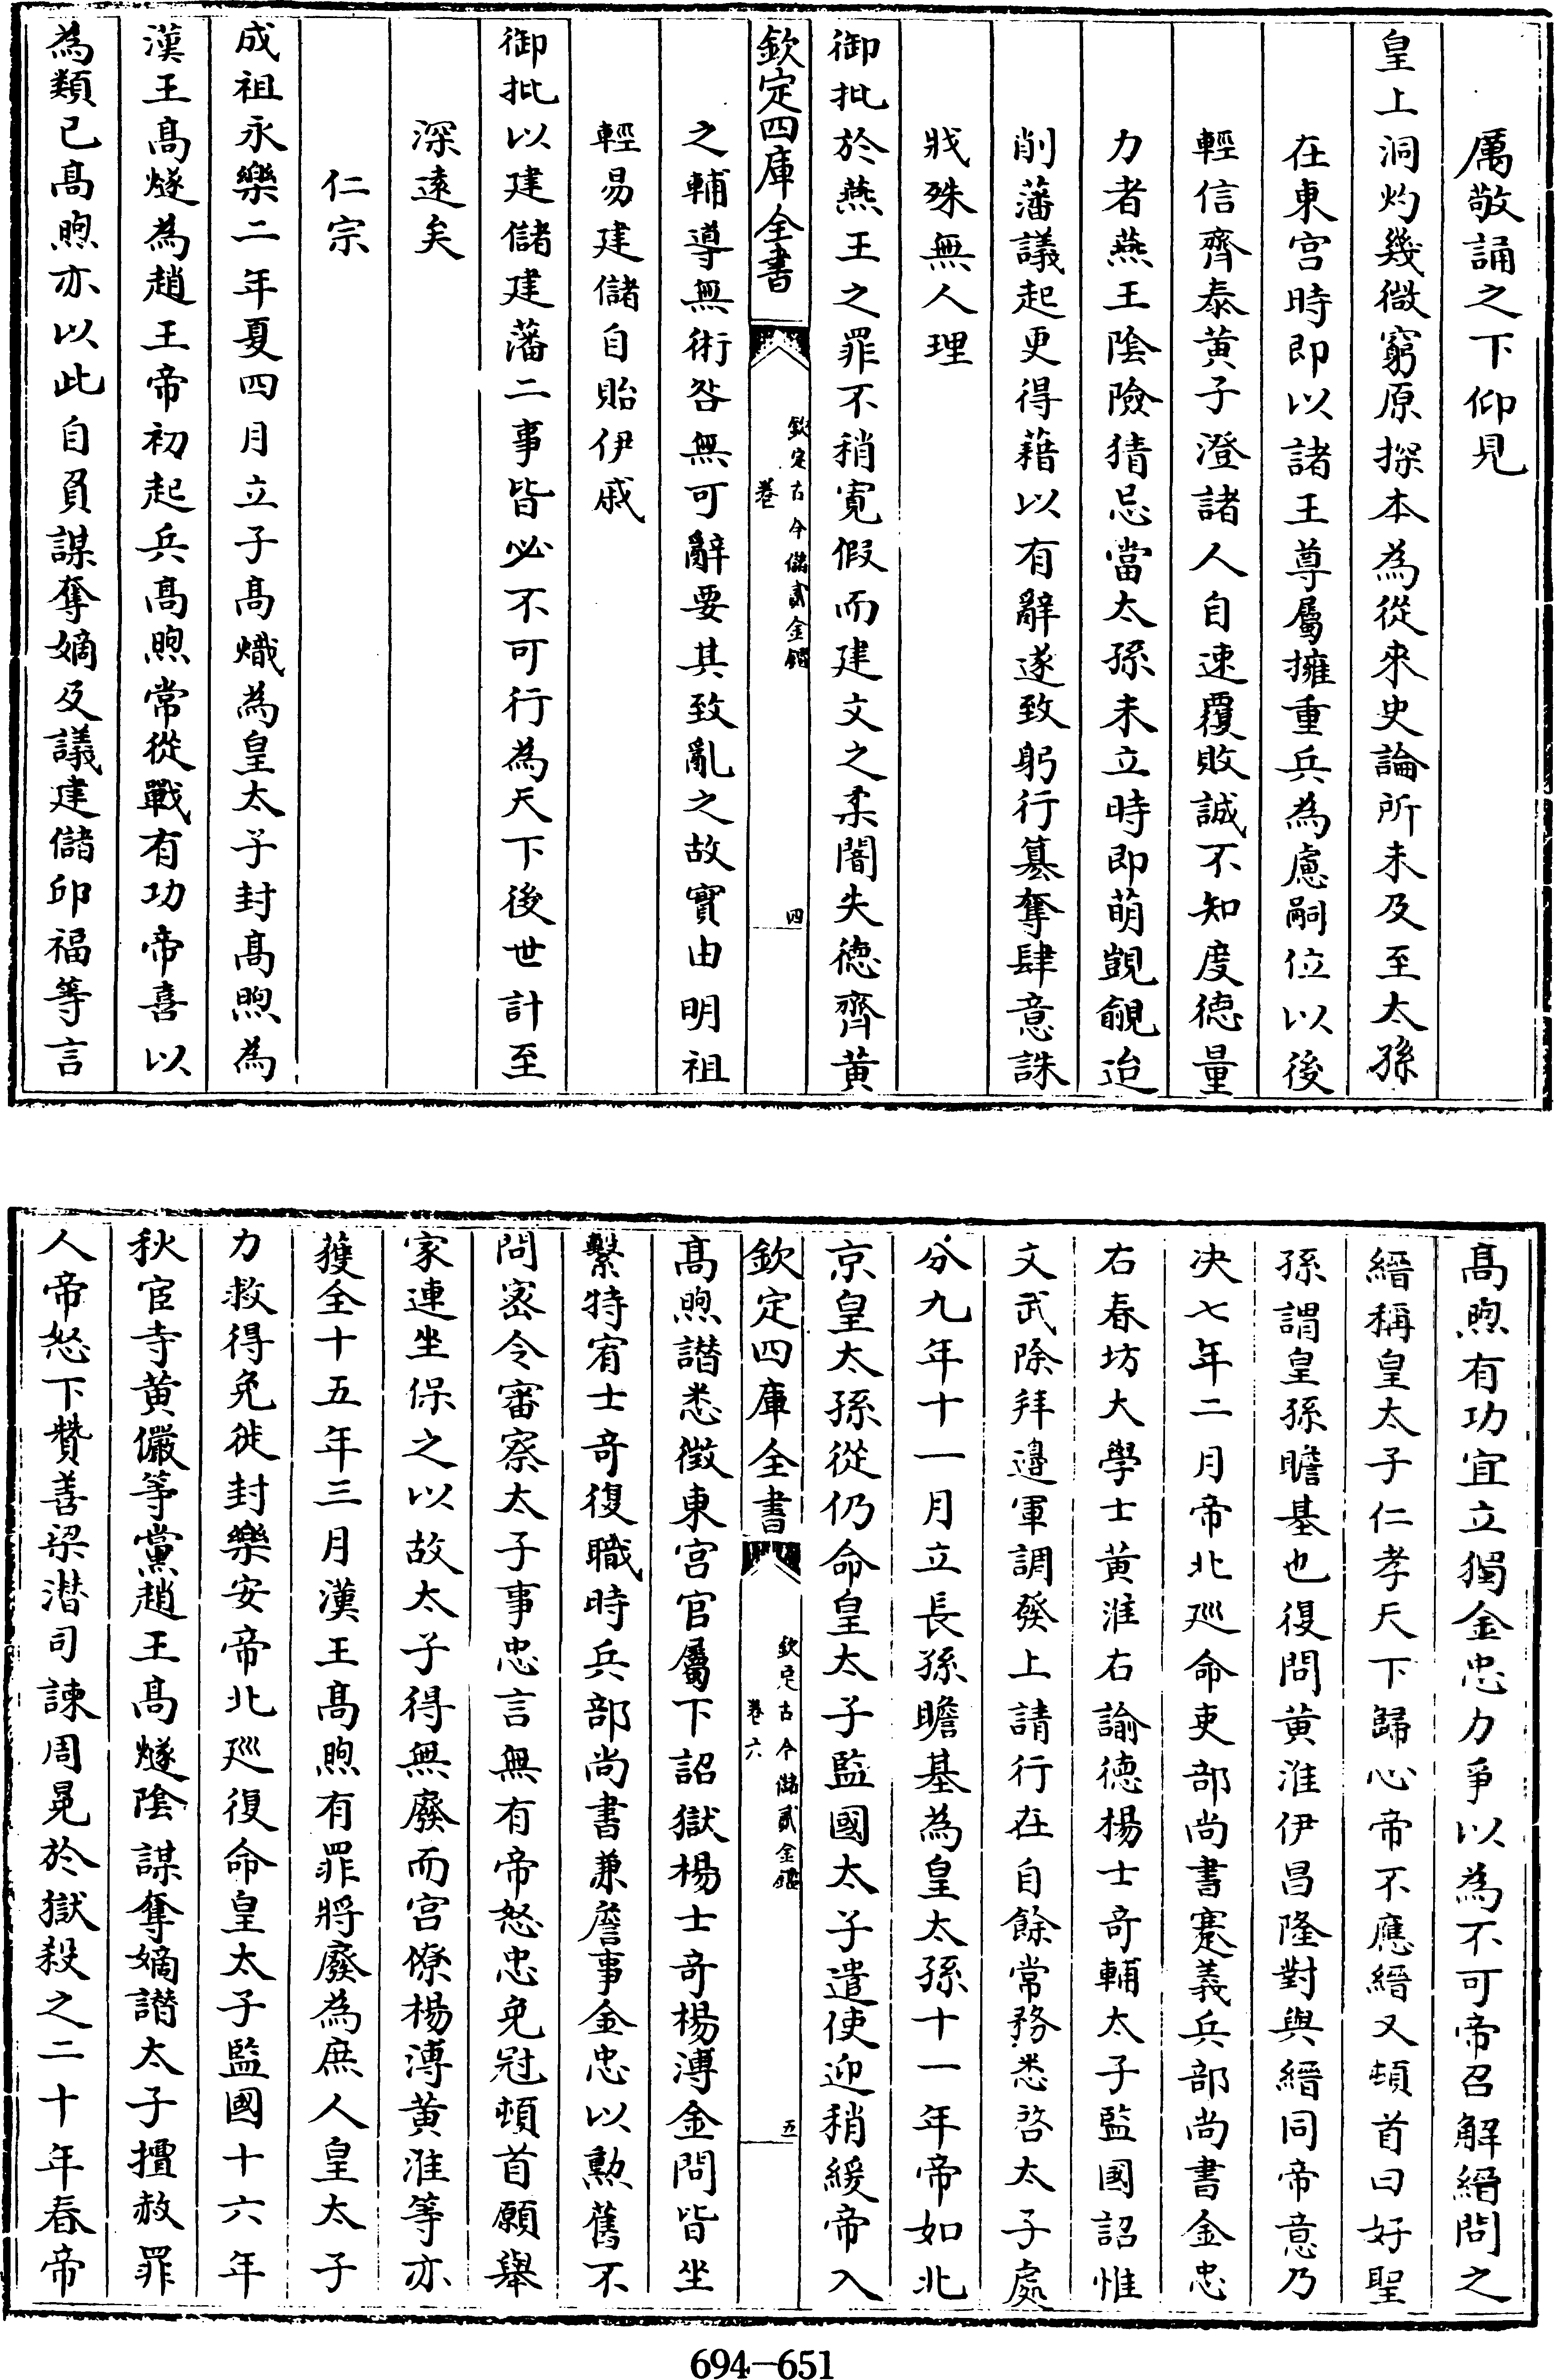 厲敬誦之下仰見
皇上洞灼幾微窮原探本為從來史論所未及至太孫
在東宫時即以諸王尊屬擁重兵為慮嗣位以後
輕信齊泰黄子澄諸人自速覆敗誠不知度德量
力者燕王陰險猜忌當太孫未立時即萌覬覦迨
削藩議起更得藉以有辭遂致躬行簒奪肆意誅
戕殊無人理
御批於燕王之罪不稍寛假而建文之柔闇失德齊黄
欽定四庫全書
欽定古今儲貳金鑑
卷
四
之輔導無術咎無可辭要其致亂之故實由明祖
輕易建儲自貽伊戚
御批以建儲建藩二事皆必不可行為天下後世計至
深遠矣
仁宗
成祖永樂二年夏四月立子髙熾為皇太子封髙煦為
漢王髙燧為趙王帝初起兵髙煦常從戰有功帝喜以
為類已髙煦亦以此自負謀奪嫡及議建儲邱福等言
髙煦有功宜立獨金忠力爭以為不可帝召解縉問之
縉稱皇太子仁孝天下歸心帝不應縉又頓首曰好聖
孫謂皇孫瞻基也復問黄淮伊昌隆對與縉同帝意乃
决七年二月帝北廵命吏部尚書蹇義兵部尚書金忠
右春坊大學士黄淮右諭德楊士奇輔太子監國詔惟
文武除拜邉軍調發上請行在自餘常務悉啓太子處
分九年十一月立長孫瞻基為皇太孫十一年帝如北
京皇太孫從仍命皇太子監國太子遣使迎稍緩帝入
欽定四庫全書
欽定古今儲貳金鑑
卷六
五
髙煦譖悉徵東宫官屬下詔獄楊士奇楊溥金問皆坐
繫特宥士奇復職時兵部尚書兼詹事金忠以勲舊不
問宻令審察太子事忠言無有帝怒忠免冠頓首願舉
家連坐保之以故太子得無廢而宫僚楊溥黄淮等亦
獲全十五年三月漢王髙煦有罪將廢為庶人皇太子
力救得免徙封樂安帝北廵復命皇太子監國十六年
秋宦寺黄儼等黨趙王髙燧陰謀奪嫡譖太子擅赦罪
人帝怒下贊善梁潛司諫周冕於獄殺之二十年春帝
694-651